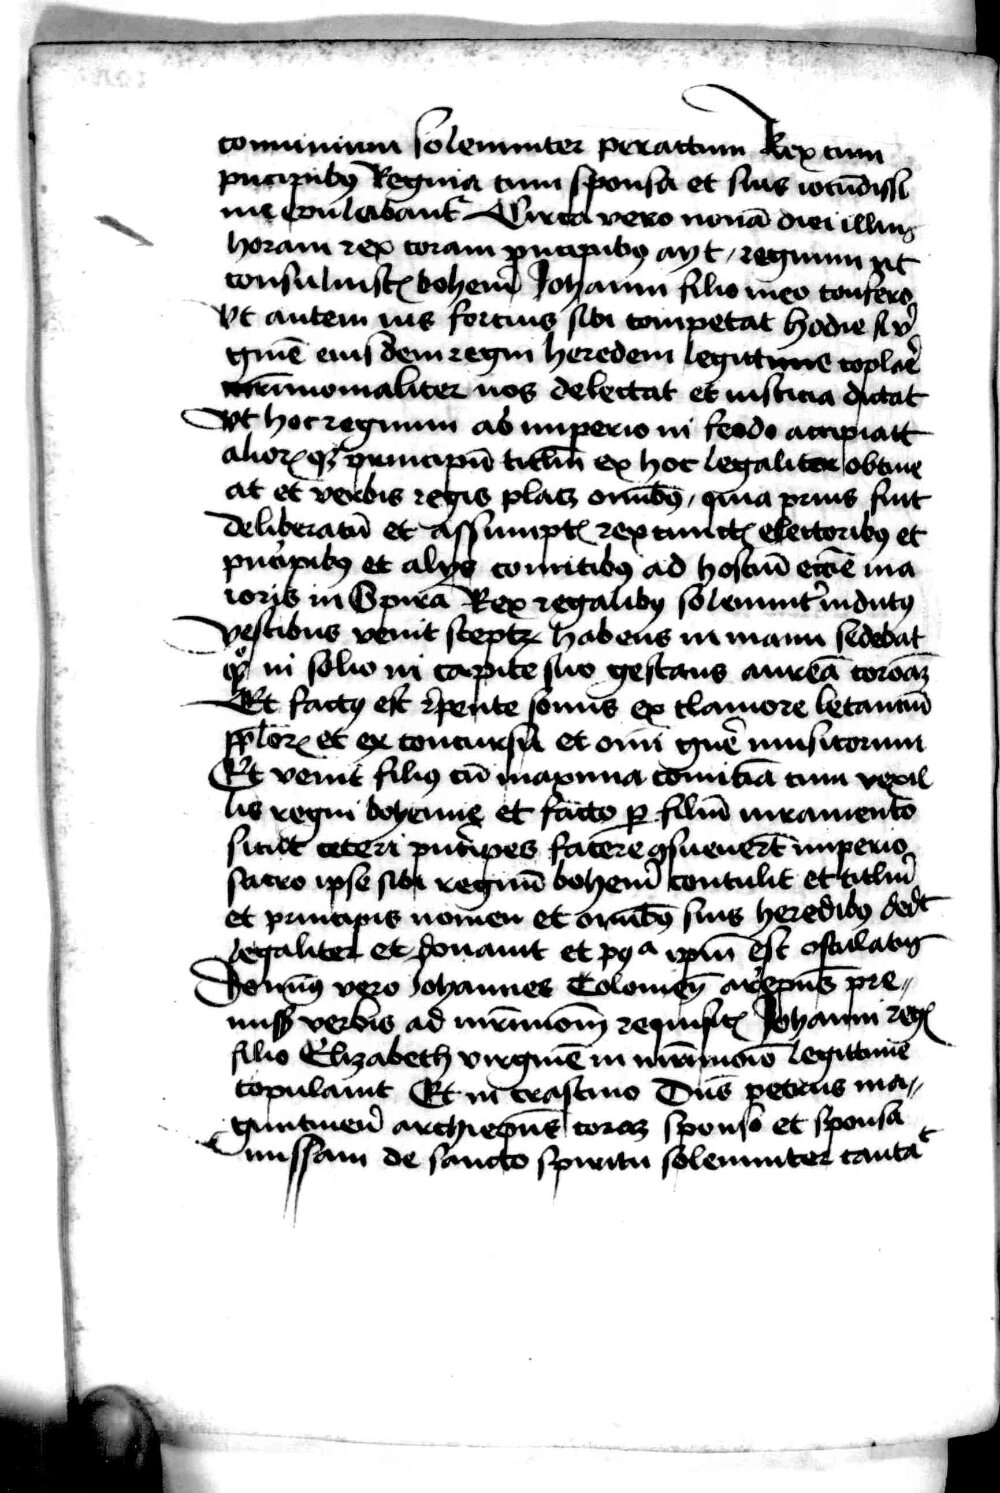 conuiuium solemniter peractum Rex cum
pncipibꝰ Regina cum sponsa et suis iocūdissi
me epulabant᷑ Circa vero nonā diei illius
horam rex coram pncipibꝰ ayt / regnum ut
consuluistꝭ bohemͥ Johanni filio meo confero
Vt autem ius forcius sibi competat hodie
eiusdem regni heredem legittime
mr̄imonialiter nos delectat et iusticia dictat
Vt hoc regnum ab imperio in feodo accipiatt
alioꝝ qꝫ principiū titlm̄ ex hoc legaliter obtine
at et verbis regis placꝫ omībꝰ / quia prius fuit
deliberatū et assumptꝭ rex cunctꝭ electoribꝰ et
pncipibꝰ et alijs comitibus ad hostiū eccͥe ma
ioris in Spira Rex regalibꝰ solemnit᷑ indutꝰ
vestibus venit sceptꝝ habens in manu sedebat
qꝫ in solio in capite suo gestans aureā coronāꝫ
Et factꝰ est repente sonus ex clamore letantiū
pploꝝ et ex concursu et omī gn̄e musicorum
Et venit filiꝰ cū maxima comitiā cum vexil
lis regni bohemie et facto ꝑ filiū iuramento
sicut ceteri pncipes facere ꝯsueuer̄t imperio
sacro ipse sibi regnū bohemͥ contulit et titlm̄
et principis nomen et omībꝰ suis heredibꝰ dedt
legaliter et donauit et pꝰqᵃ ipm̄ est osculatꝰ
Domnꝰ vero Johannes Coloniēn arͨepūs pre〃
miss verbis ad mr̄imoīm requisitꝭ Johanni regꝭ
filio Elizabeth virginē in mr̄imoīo legittime
copulauit Et in crastino Dn̄s petrus ma〃
guntinenͥ archiepūs coraꝫ sponso et sponsa
missam de sancto spiritu solemniter cantat